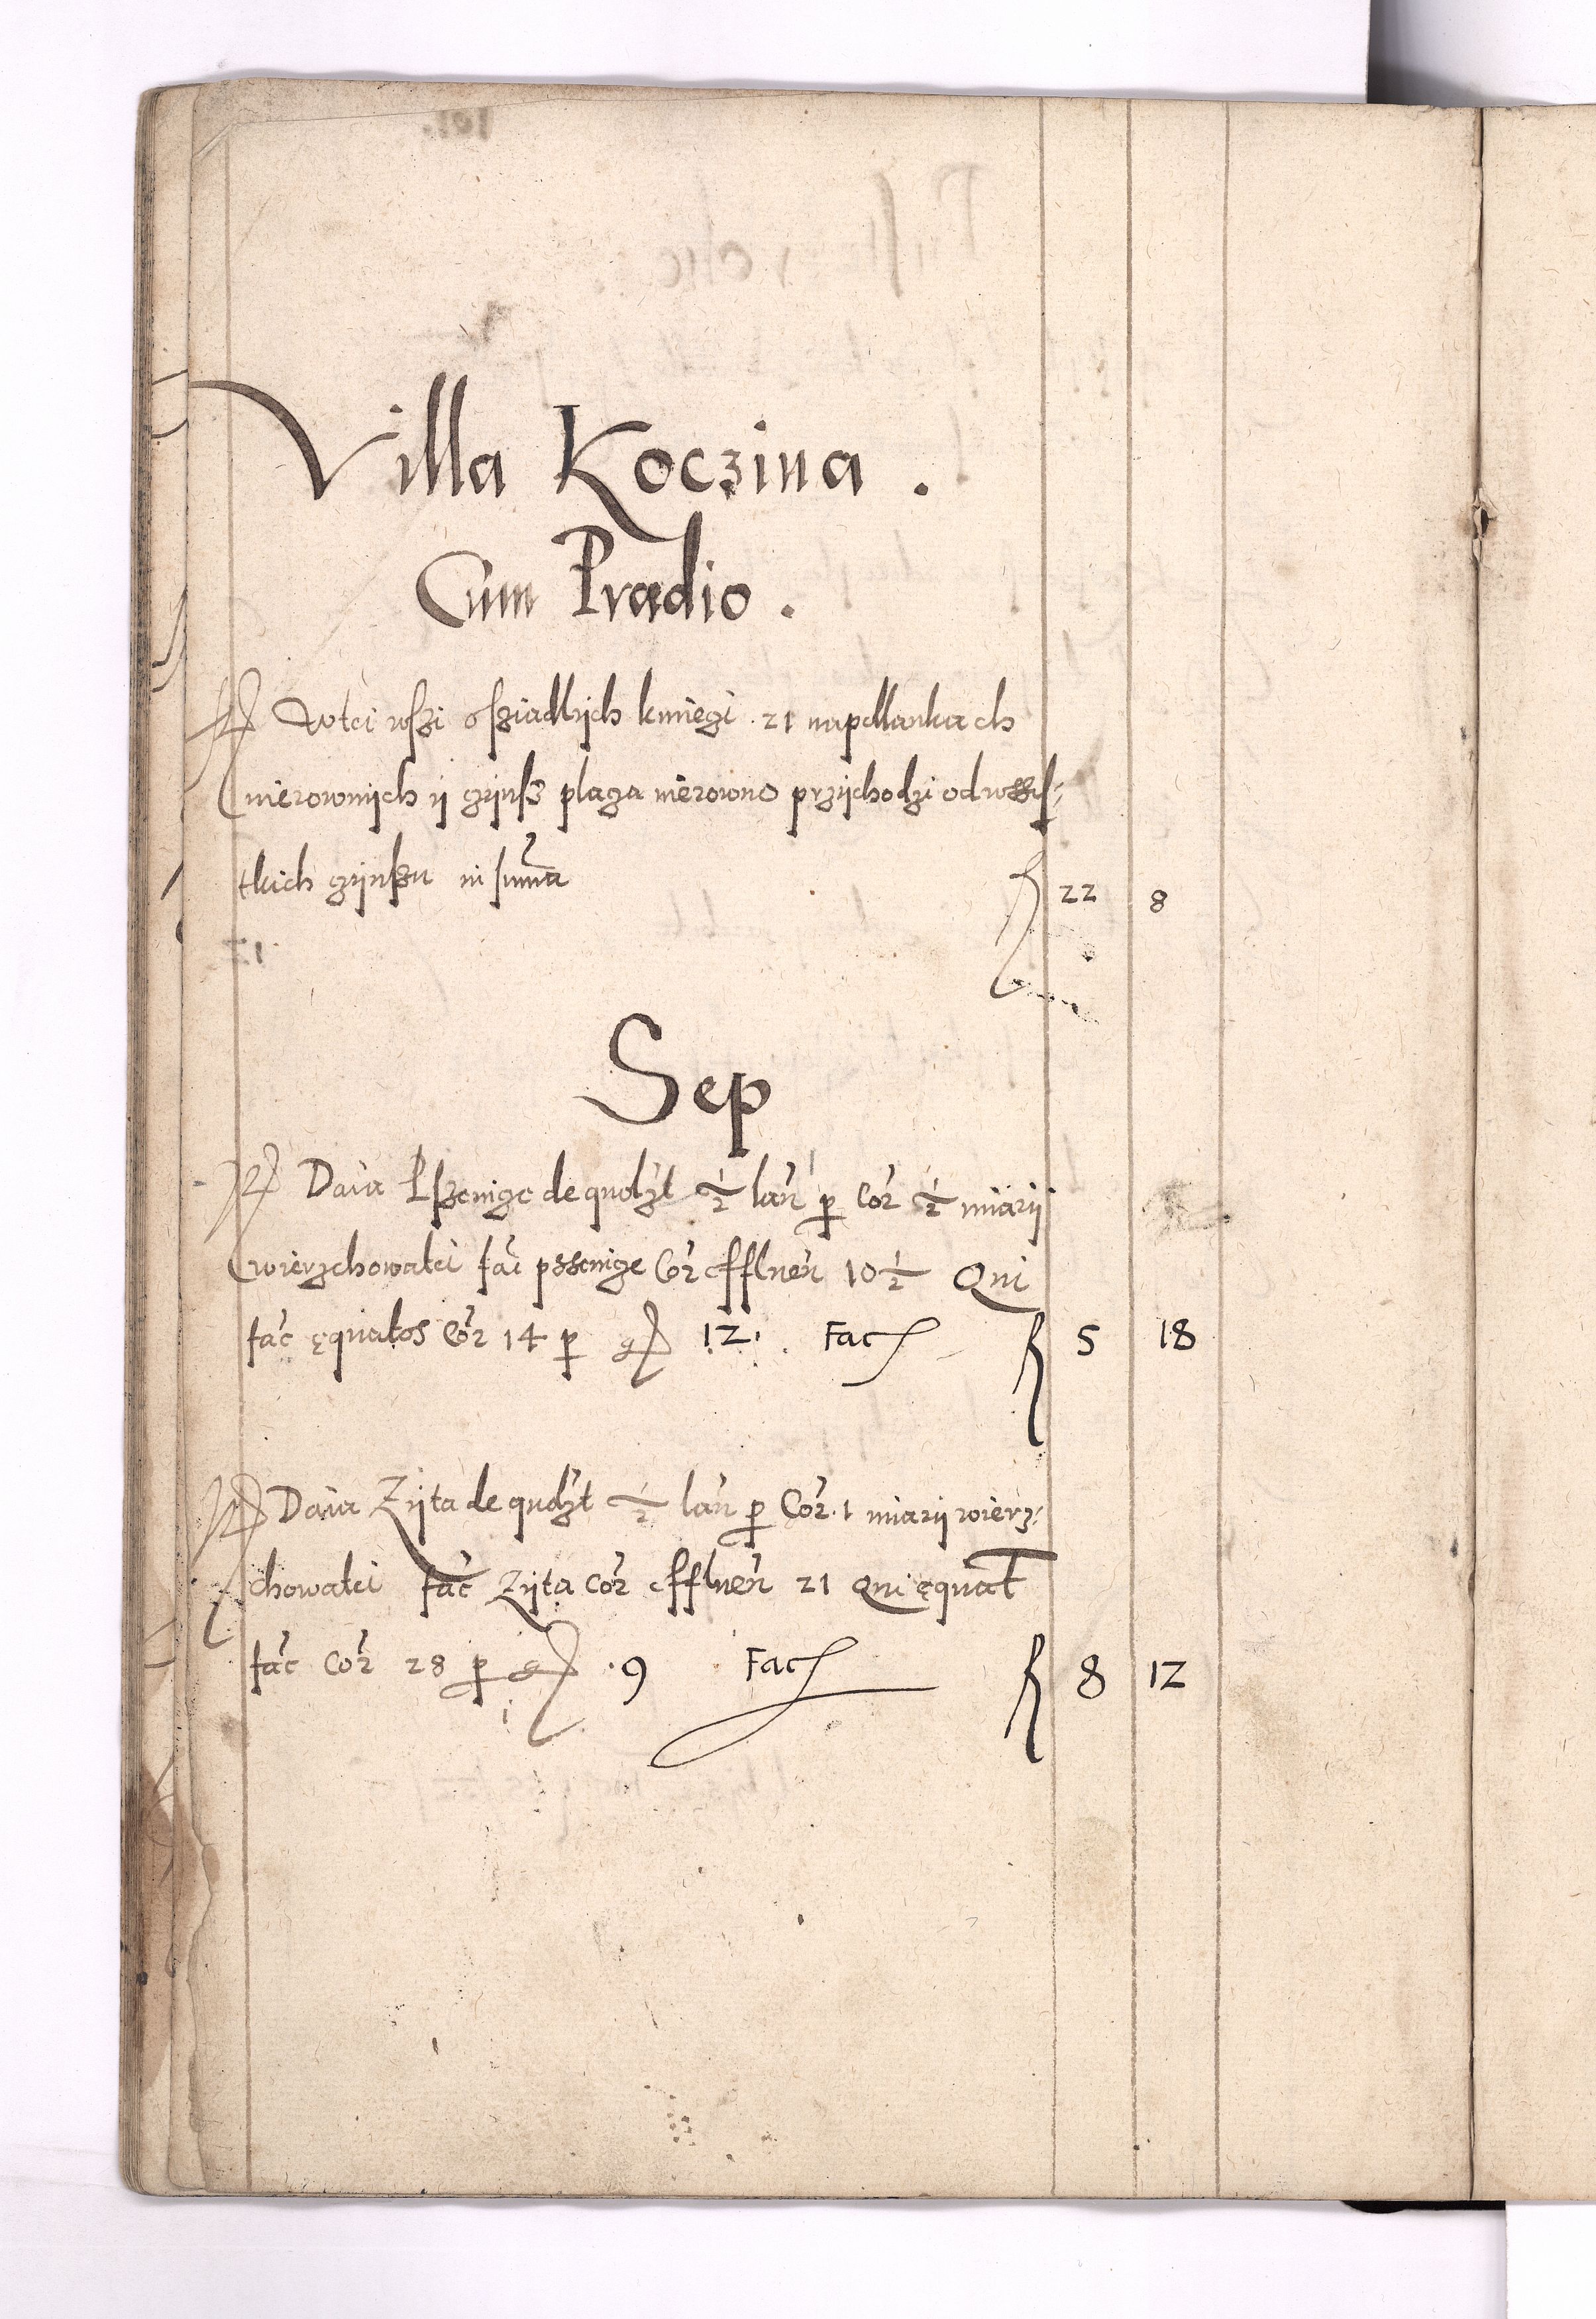 Villa Koczina .
Cum Prædio .
Wtei wſzi oſziadlych kmiegi . 21 napollankach
nierownych y czynſz placza nierowno przychodzi odwssis⸗
tkich czynſzu in ſumma 22 8
Sep
Daia Pſzenicze de quolzt ½ lan̄ p Cor ½ miary
wierzchowatei fac pszenicze Cor effluen 10 ½ Qui
fac ęquatos Cor 14 p g 12 . Fac 5 18
Daia Zyta de quolzt ½ lan̄ p Cor . 1 miary wierz⸗
chowatei fac Zyta Cor effluen 21 Qui ęquat
fac Cor 28 p g . 9 Fac 8 12